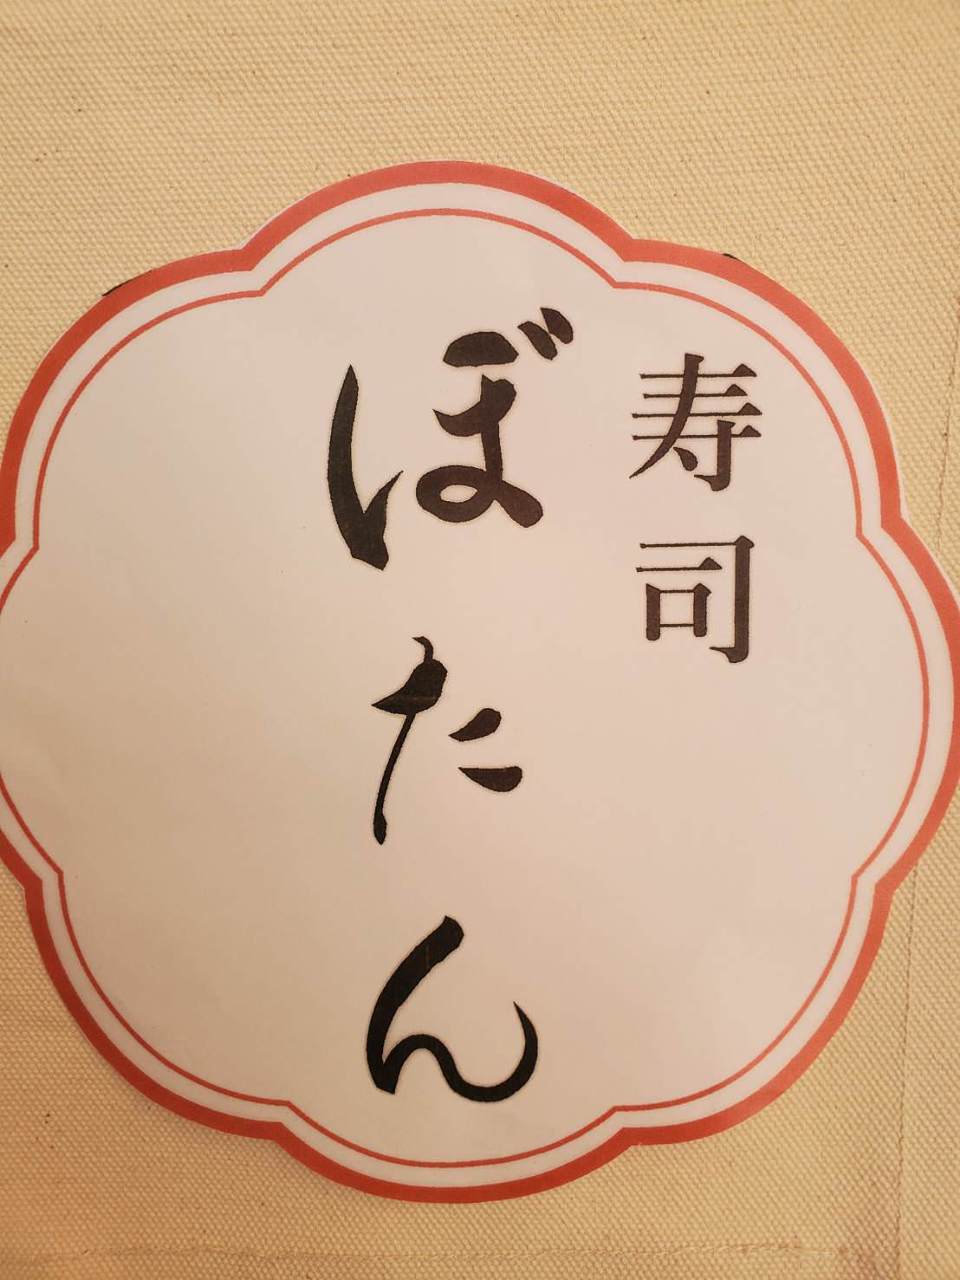 寿司
ぼたん